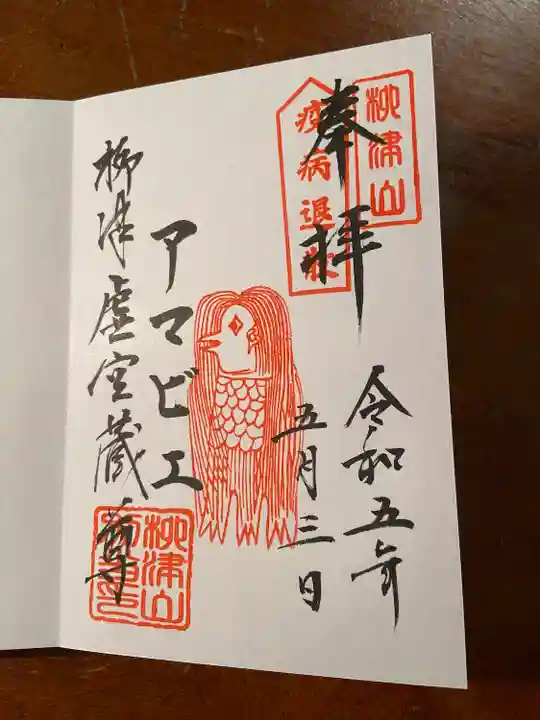 柳津山
奉拝
疫病退散
令和五年
五月三日
アマビエ
柳津虚空蔵尊
柳津山